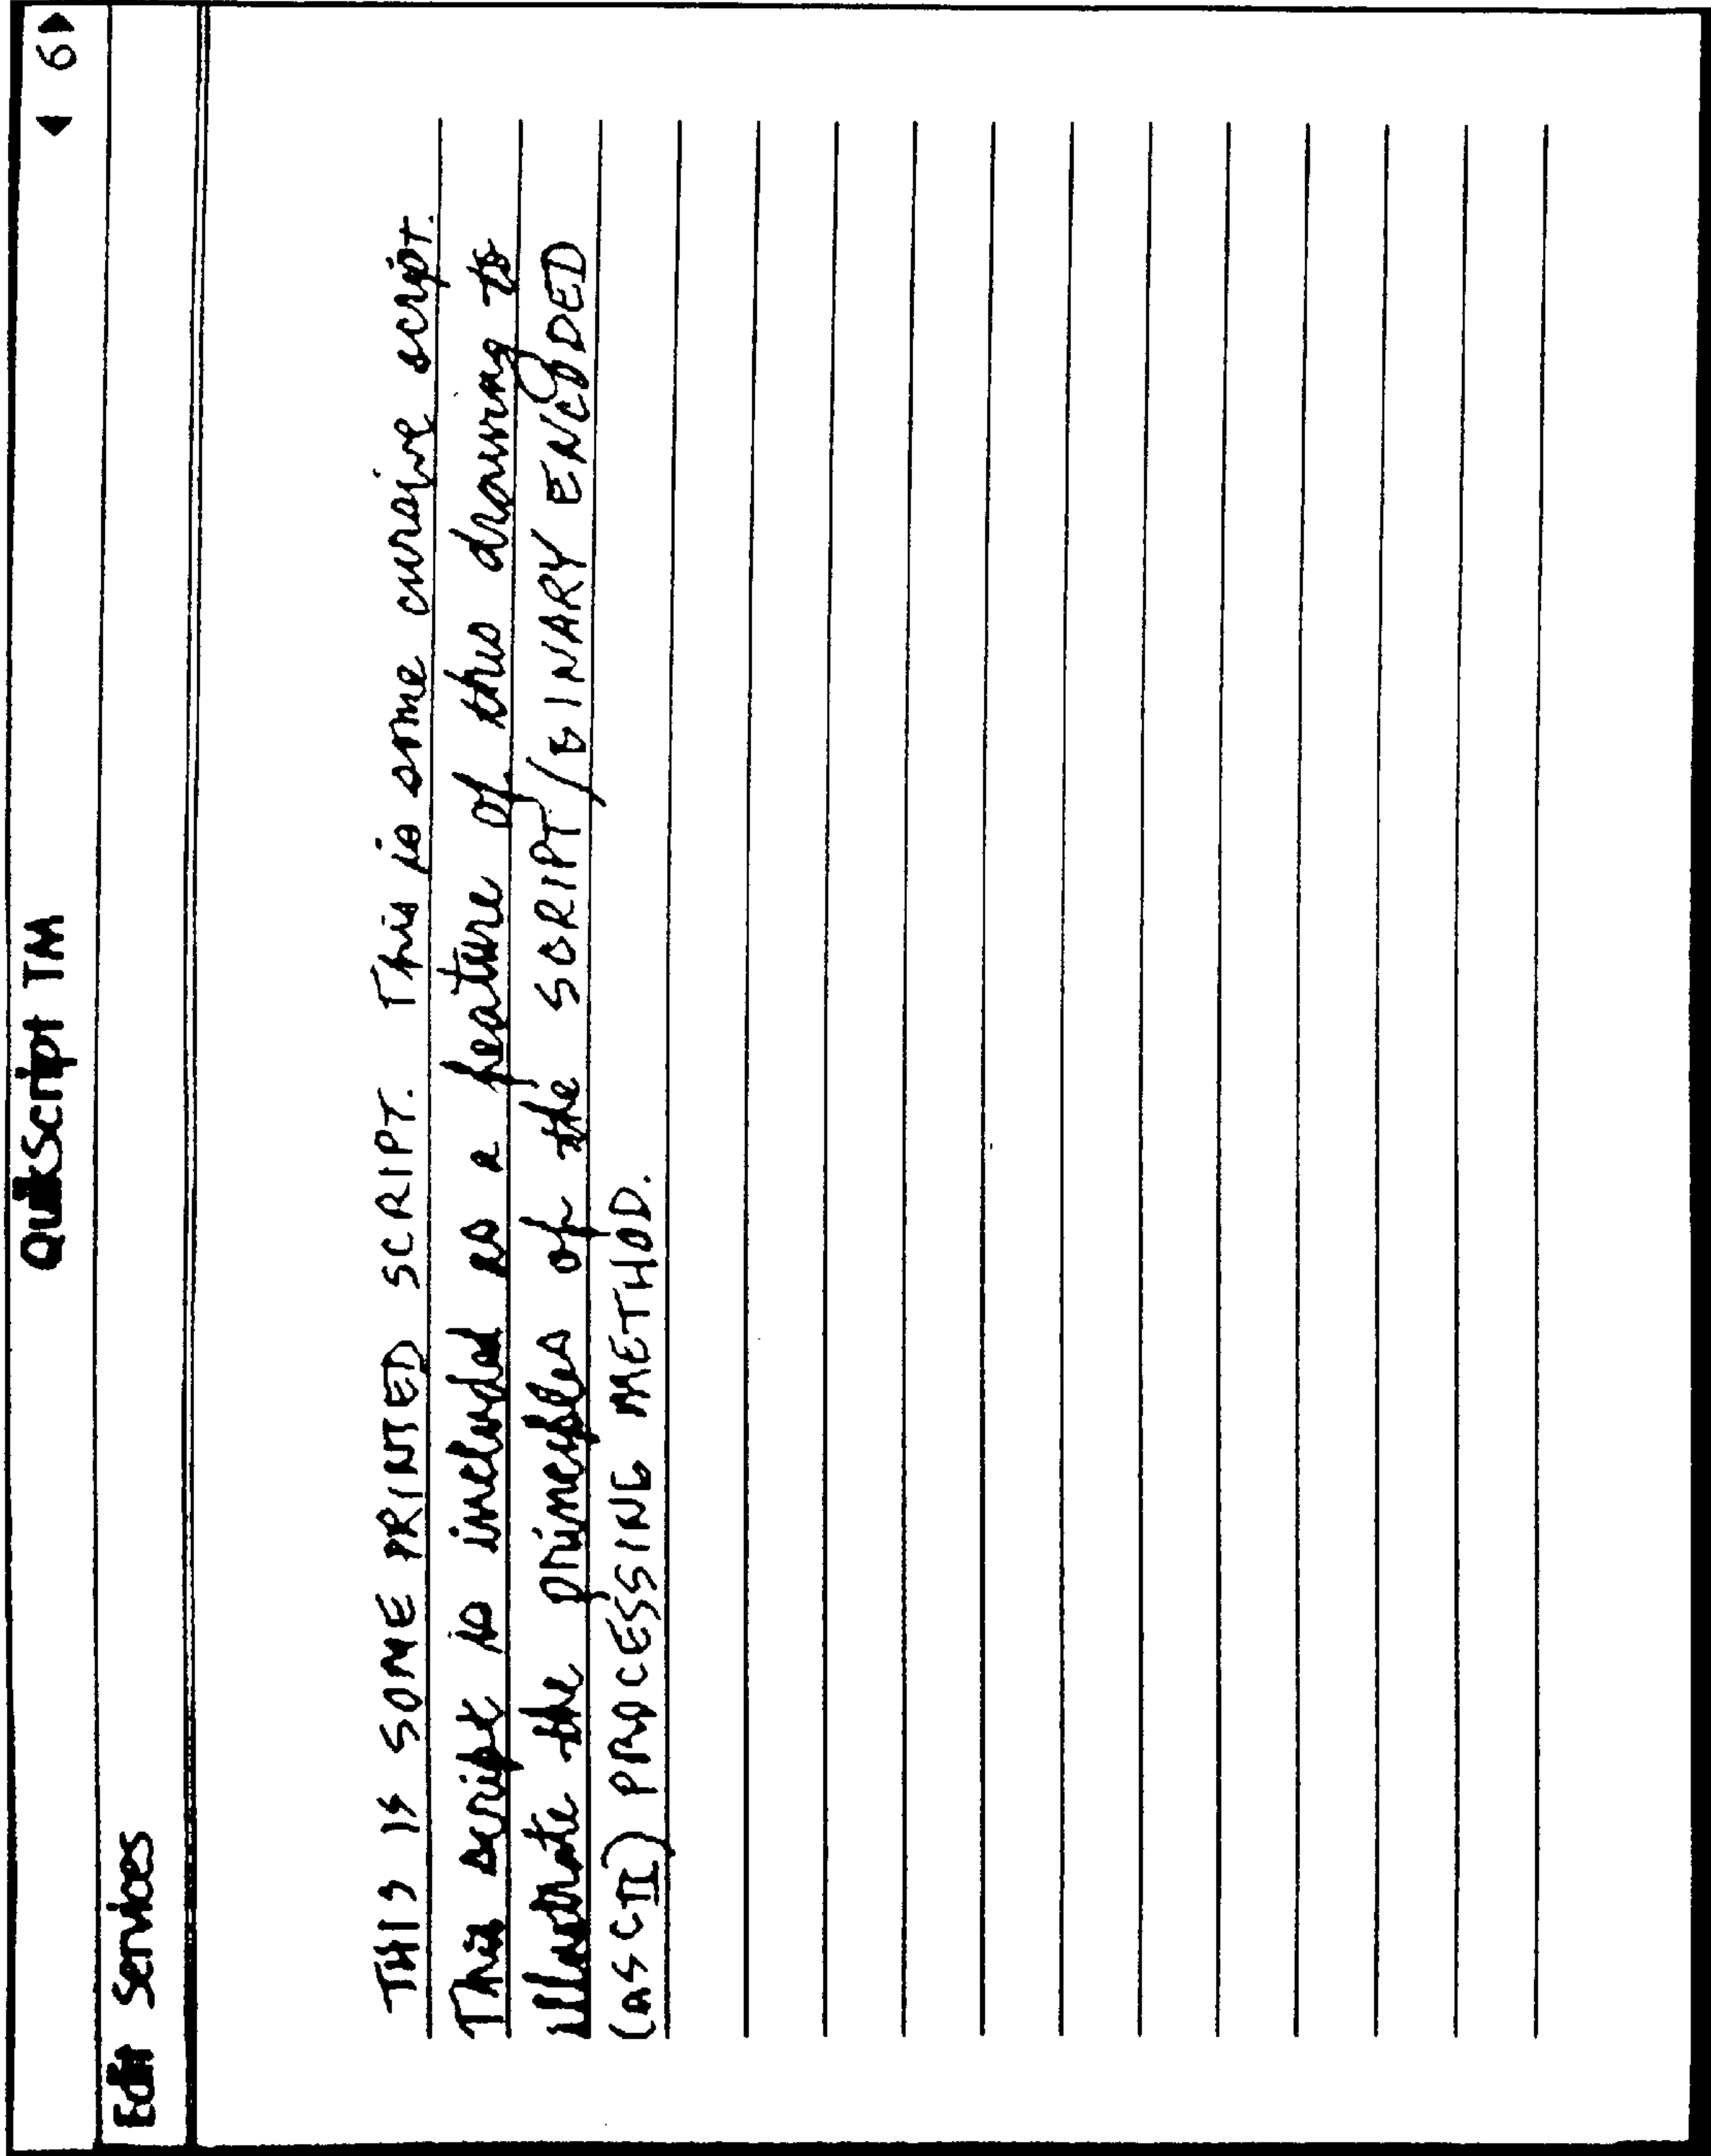 QuikScript TM ◀ 6▶
Edit Services
THIS IS SOME PRINTED SCRIPT. This is some cursive script.
This script is included as a feature of this drawing to
illustrate the principles of the SCRIPT/BINARY ENCODED
(ASCII) PROCESSING METHOD.